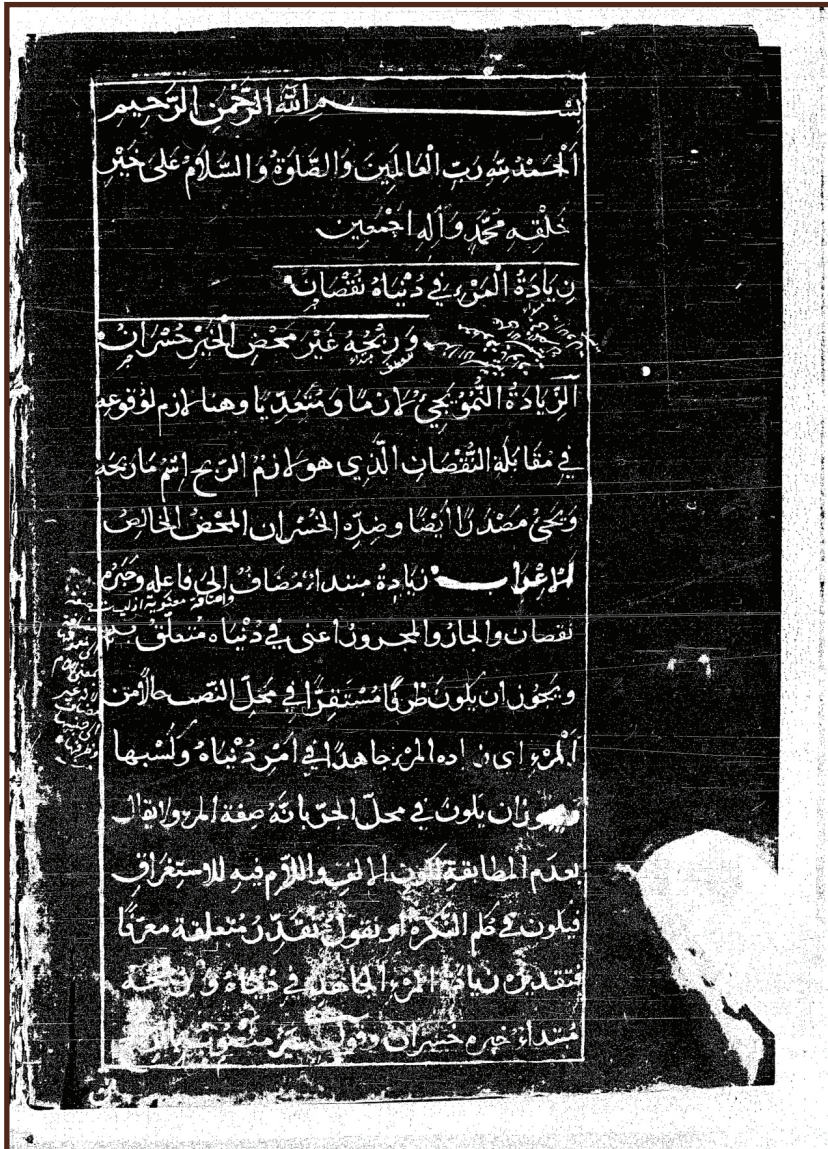 بِسْمِ اللّٰهِ الرَّحْمٰنِ الرَّحِيمِ
اَلْحَمْدُ لِلّٰهِ رَبِّ الْعَالَمِينَ وَالصَّلوٰةُ وَالسَّلَامُ عَلَى خَيْرِ
خَلْقِهِ مُحَمَّدٍ وَاٰلِهِ اَجْمَعِين
زِيَادَةُ الْمَرْءِ فِي دُنْيَاهُ نُقْصَانٌ
وَرِبْحُهُ غَيْرَ مَحْضِ الْخَيْرِ خُسْرَانٌ
اَلزِّيَادَةُ النُّمُوُّ يَجِيْءُ لازمًا وَمُتَعَدِّيًا وهنا لازم لوُقوعه
في مقابلة النُّقْصَانِ الَّذِي هو لازمٌ الرّبح اسْمُ مَا رَبِحَه
وَيَجِيْءُ مَصْدَرًا اَيْضًا وضدّه الخُسْران المحْض الخالص
الاعْراب زِيَادَةُ مبتداءٌ مُضَافٌ الى فاعله وخبره
نقصان والجارّ والمجرور اعنى في دُنْيَاه مُتعلّق بها
ويجُوز ان يكون ظرفًا مُسْتَقِرًّا في محلّ النّصب حالًا من
اَلْمَرْءِ اى زاده المرء جاهدًا في امر دُنْيَاهُ وكَسْبها
ويجوز ان يكون في محلّ الجرّ بانّه صفة المرء ولا يقال
بعدم المطابقة لكون الالف واللّام فيه للاستغراق
فيكون في حكم النّكرة او نقول نقدّر مُتعلقه معرّفًا
فتقديره زيادة المرء الجاهد في دنياه وربحه
مبتداء خبره خسران وقوله غير منصوب